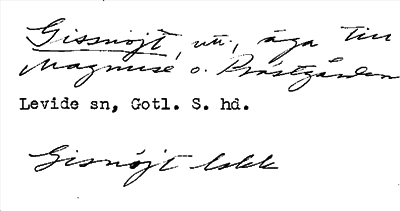 Gissnöjt, utt, äga till
Magnuse o. Prästgården
Levide sn, Gotl. S. hd.
Gisnöjt